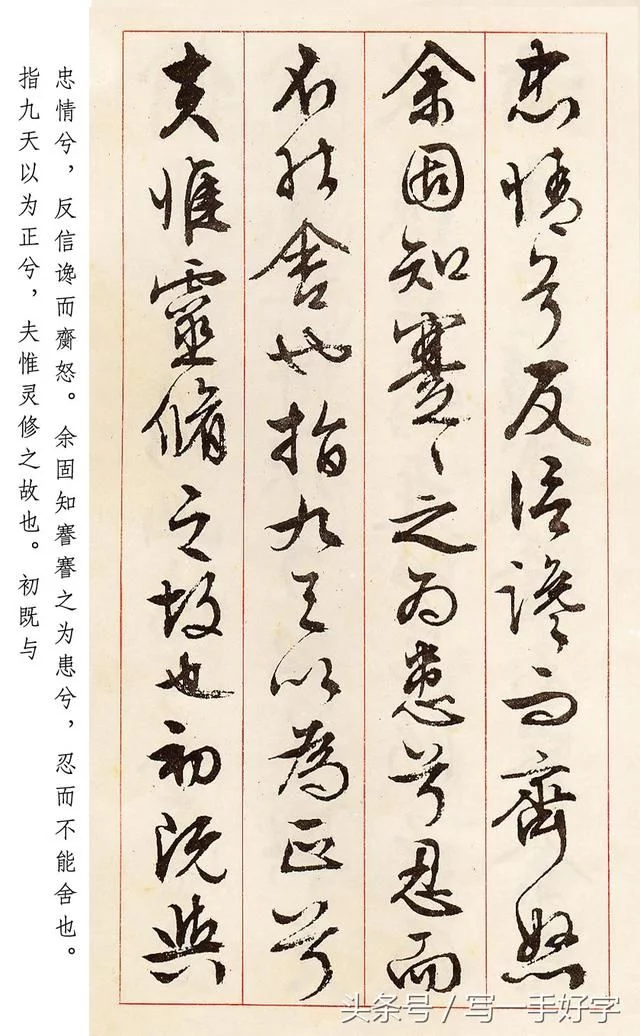 忠情兮反信讒而齊怒
余固知謇々之为患兮忍而
不能舍也指九天以為正兮
夫惟靈脩之故也初既與
忠情兮，反信谗而齌怒。余固知謇謇之为患兮，忍而不能舍也。
指九天以为正兮，夫惟灵修之故也。初既与
头条号 / 写一手好字